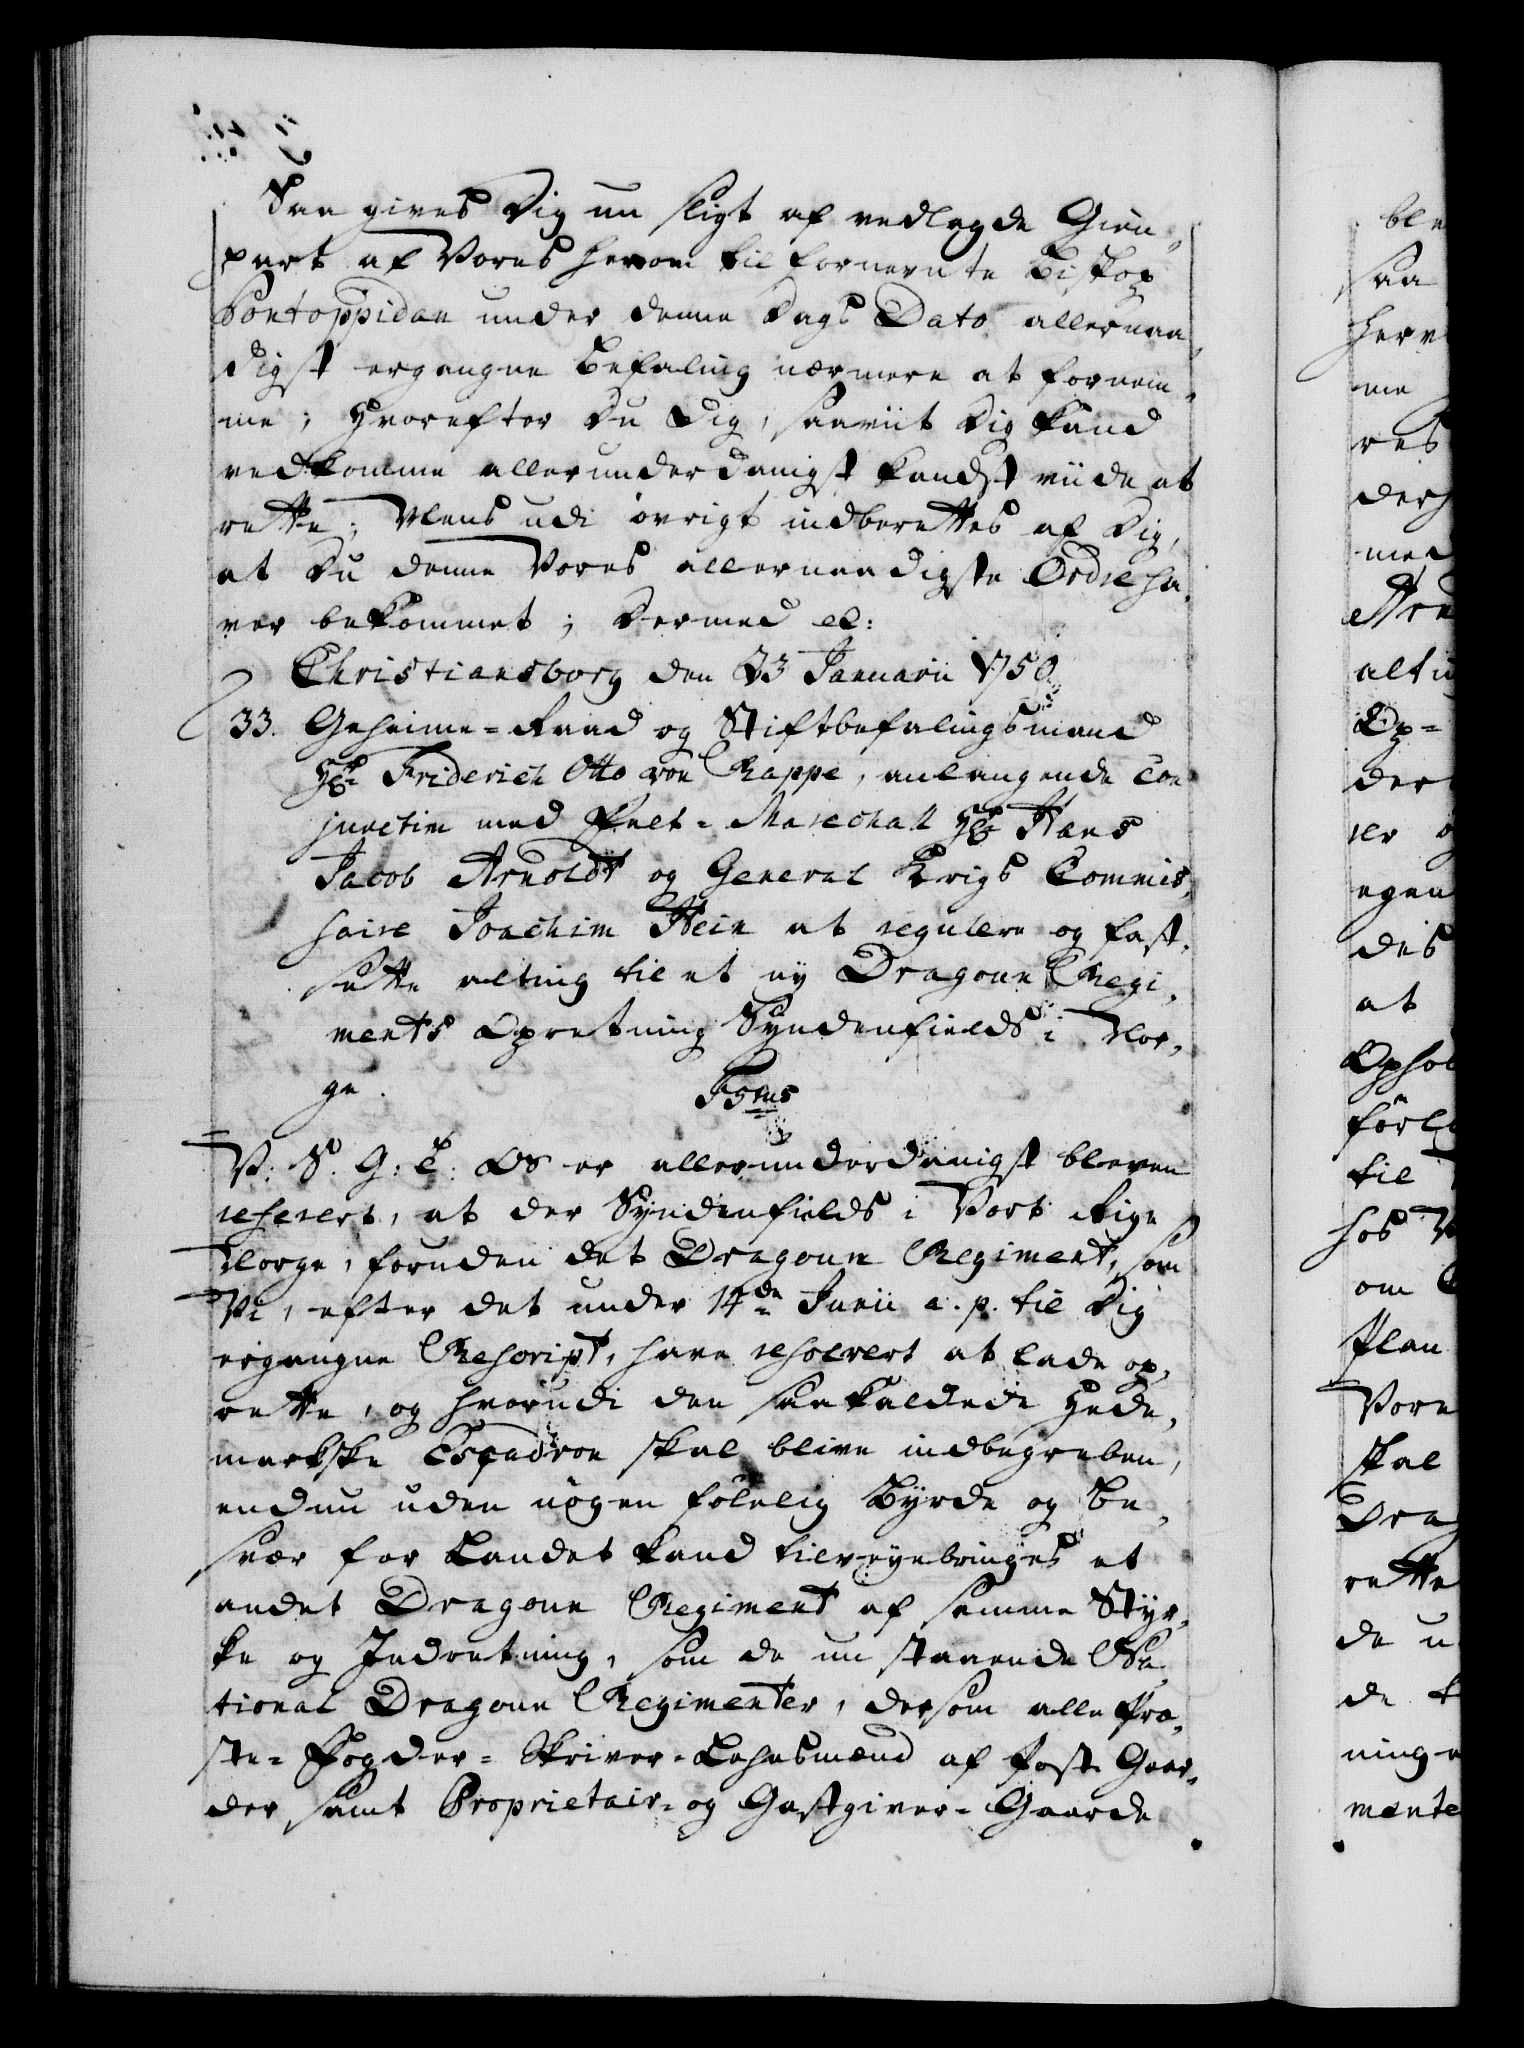 Saa gives Dig nu sligt af vedlagde Gien,
part af Vores herom til fornevnte Biskop
Pontoppidan under denne Dags Dato allernaa,
digst ergangne Befaling nærmere at fornem,
me; Hvorefter Du Dig, saaviit Dig kand
vedkomme allerunderdanigst kandst viide at
rette; Mens udi øvrigt indberettes af Dig,
at Du denne Vores allernaadigste Ordre ha,
ver bekommet; Dermed etc:
Christiansborg den 23 Januarii 1750
33. Geheime-Raad og Stiftbefalingsmand
Hr. Friderich Otto von Rappe, anlangende con
junctim med Felt-Marechall Hr. Hans
Jacob Arnoldt og General Krigs Commis,
saire Joachim Hein at regulere og fast,
sette alting til et ny Dragoun Regi,
ments Opretning Syndenfields i Nor,
ge.
F5tus
V. S. G. T. Os er allerunderdanigst bleven
referert, at der Syndenfields i Vort Rige
Norge, foruden det Dragoun Regiment, som
Vi, efter det under 14de Junii a. p. til Dig
ergangne Rescript, have resolvert at lade op,
rette, og hvorudi den saa kaldede Hede,
markske Esqvadron skal blive indbegreben,
endnu uden nogen følelig Byrde og Be,
svær for Landet kand tilveyebringes et
andet Dragoun Regiment af samme Styr,
ke og Indretning, som de nu staaende Na,
tional Dragoun Regimenter, dersom alle Præ,
ste- Fogder- Skriver- Lehnsmænd af Post Gaar,
der samt Proprietair- og Gastgiver-Gaarde
ble
saa
herv
me
res
ders
med
alti
Op-
der
ler o
egen
des
at
Ophol
forl
til
hos V
om
Plan
Vore
skal
Drag
rette
de u
de
ning
mente